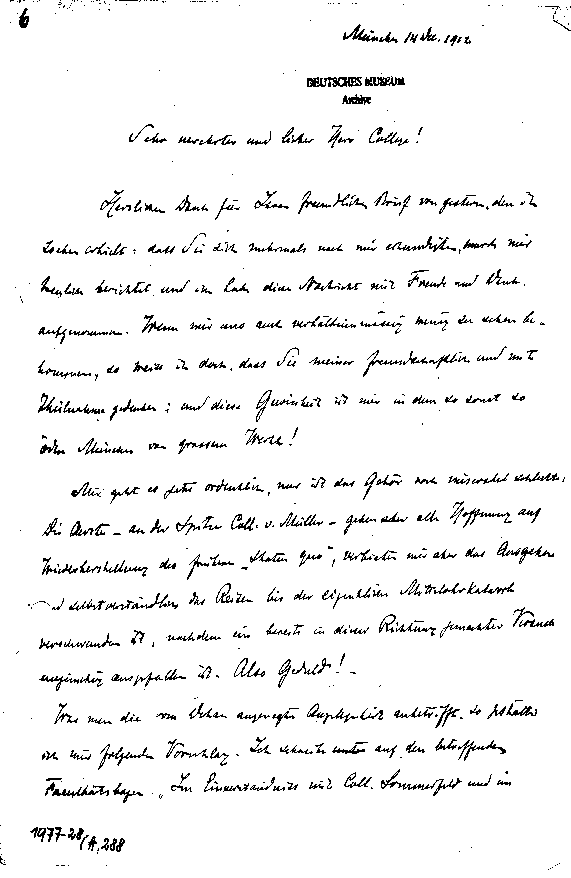 6
München 14 Dec. 1912
DEUTSCHES MUSEUM
Archiv
Sehr verehrter und lieber Herr College!
Herzlichen Dank für Ihren freundlichen Brief von gestern, den ich
soeben erhielt: dass Sie sich mehrmals nach mir erkundigten, wurde mir
berichtet und ich habe diese Nachricht mit Freude und Dank
aufgenommen. Wenn wir uns auch verhältnissmässig wenig zu sehen be-
kommen, so weiss ich doch, dass Sie meiner freundschaftlich und mit
Theilnahme gedenken; und diese Gewissheit ist mir in dem so sonst so
öden München von grossem Werth!
Mir geht es jetzt ordentlich, nur ist das Gehör noch miserabel schlecht.
Die Aerzte – an der Spitze Coll. v. Müller – geben aber alle Hoffnung auf
Wiederherstellung des früheren „status quo“, verbieten mir aber das Ausgehen
und selbstverständlich das Reisen bis der eigentliche Mittelohrkatarrh
verschwunden ist, nachdem ein bereits in dieser Richtung gemachter Versuch
ungünstig ausgefallen ist. Also Geduld! –
Was nun die vom Dekan angeregte Angelegenheit anbetrifft, so gestatte
ich mir folgenden Vorschlag. Ich schreibe unten auf den betreffenden
Facultätsbogen: „Im Einverständniss mit Coll. Sommerfeld und im
1977-28/A,288